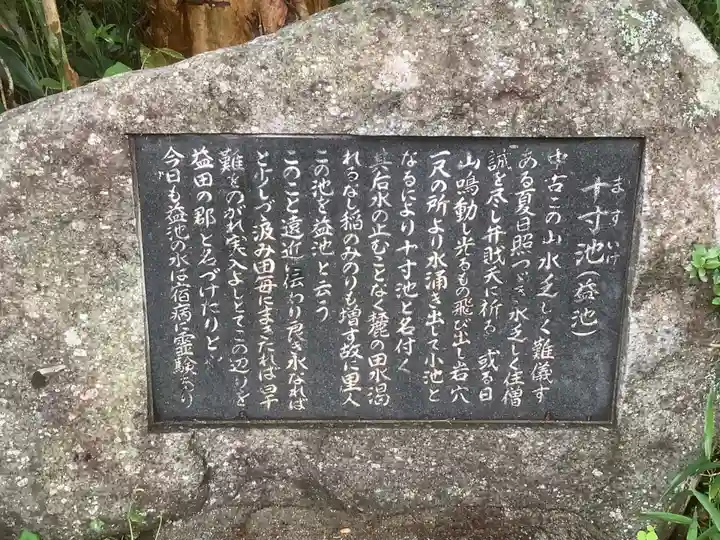 ますいけ
十寸池(益池)
中古この山水乏しく難儀す
ある夏日照つゞき水乏しく住僧
誠を尽し弁財天に祈る 或る日
山鳴動し光るもの飛び出し岩穴
一尺の所より水涌き出して小池と
なるにより十寸池と名付く
其后水の止むことなく麓の田水渇
れるなし稲のみのりも増す故に里人
この池を益池と云う
このこと遠近に伝わり良き水なれば
と少しづゝ汲み田毎にまきたれば旱
難をのがれ実入よしとてこの辺りを
益田の郡と名づけたりと
今日も益池の水は宿病に霊験あり